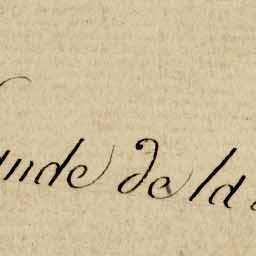 ande de la